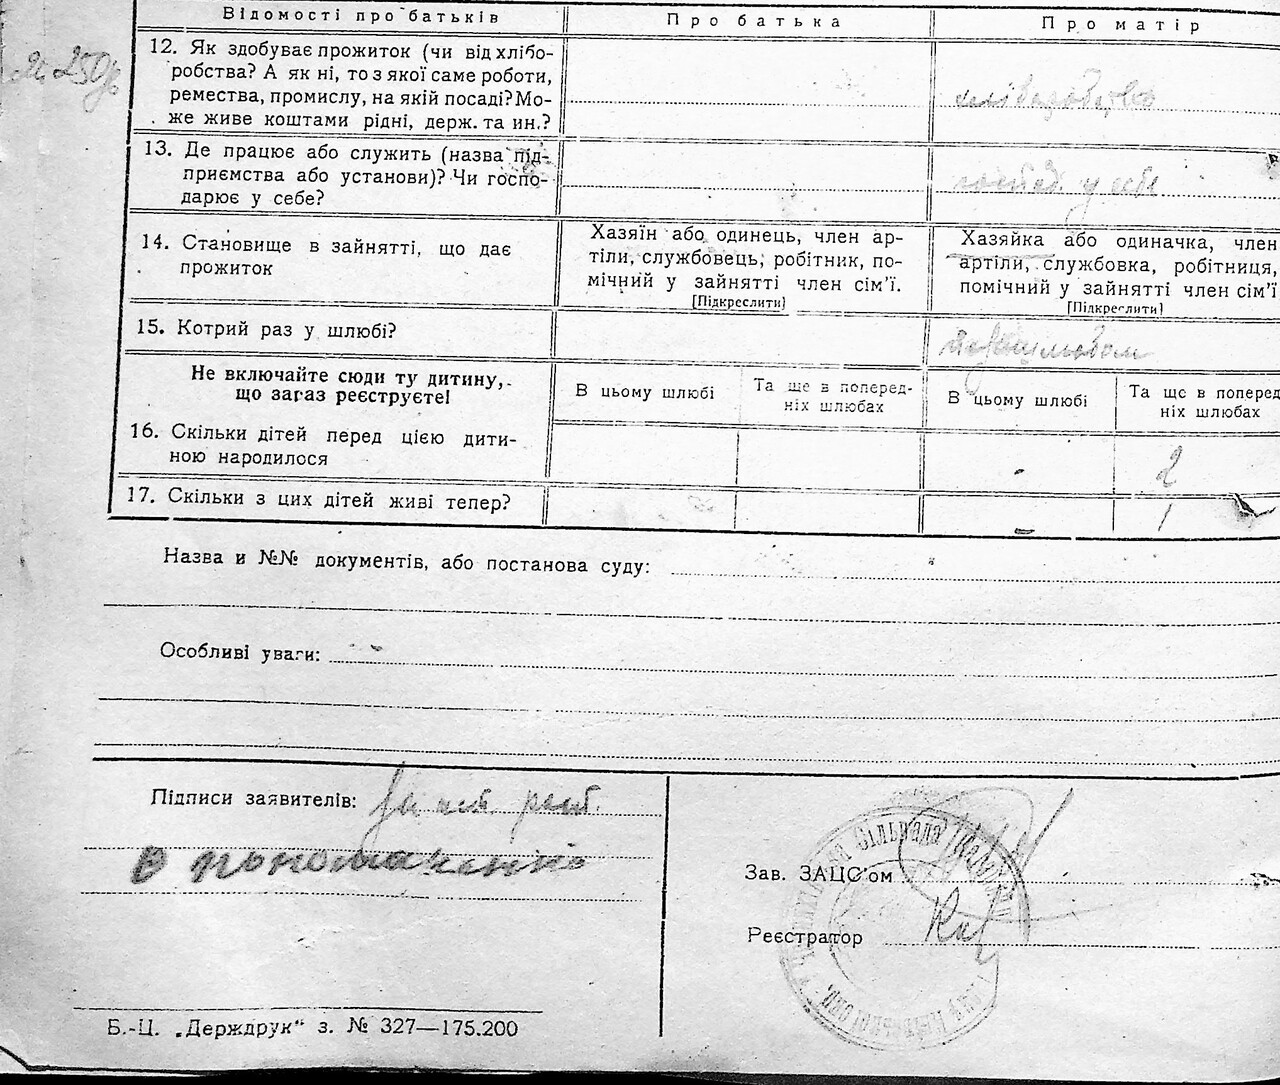 Відомості про батьків
Про батька
Про матір
№ 250
12. Як здобуває прожиток (чи від хлібо-
робства? А як ні, то з якої саме роботи,
ремества, промислу, на якій посаді? Мо-
же живе коштами рідні, держ. та ин.?
хліборобство
13. Де працює або служить (назва під-
приємства або установи)? Чи госпо-
дарює у себе?
у себе
14. Становище в зайнятті, що дає
прожиток
Хазяїн або одинець, член ар-
тіли, службовець, робітник, по-
мічний у зайнятті член сім'ї.
[Підкреслити]
Хазяйка або одиначка, член
артіли, службовка, робітниця,
помічний у зайнятті член сім'ї
[Підкреслити]
15. Котрий раз у шлюбі?
Не включайте сюди ту дитину,
що зараз реєструєте!
В цьому шлюбі
Та ще в поперед-
ніх шлюбах
В цьому шлюбі
Та ще в поперед
ніх шлюбах
16. Скільки дітей перед цією дити-
ною народилося
-
2
17. Скільки з цих дітей живі тепер?
-
1
Назва и №№ документів, або постанова суду:
Особливі уваги:
Підписи заявителів:
В пономаченко
Зав. ЗАЦС'ом
Реєстратор
Сільрада
Б.-Ц. „Держдрук“ з. № 327—175.200